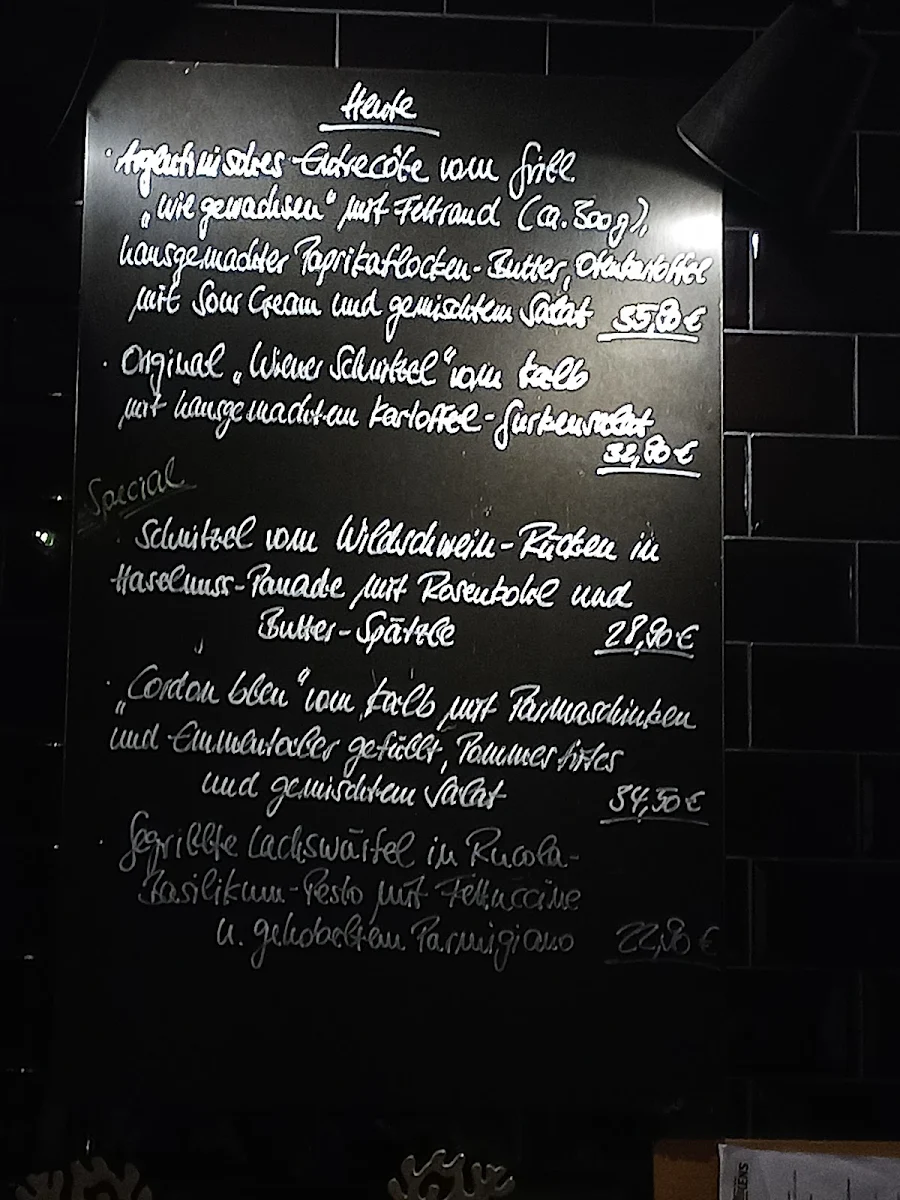 Heute
· Argentinisches Entrecôte vom Grill
„wie gewachsen“ mit Fettrand (ca. 300g),
hausgemachter Paprikaflocken-Butter, Ofenkartoffel
mit Sour Cream und gemischtem Salat 35,80 €
· Original „Wiener Schnitzel“ vom Kalb
mit hausgemachtem Kartoffel-Gurkensalat
32,80 €
Special
· Schnitzel vom Wildschwein-Rücken in
Haselnuss-Panade mit Rosenkohl und
Butter-Spätzle 28,80 €
· „Cordon bleu“ vom Kalb mit Parmaschinken
und Emmentaler gefüllt, Pommes frites
und gemischtem Salat 34,50 €
· Gegrillte Lachswürfel in Rucola-
Basilikum-Pesto mit Fettuccine
u. gehobeltem Parmigiano 22,80 €